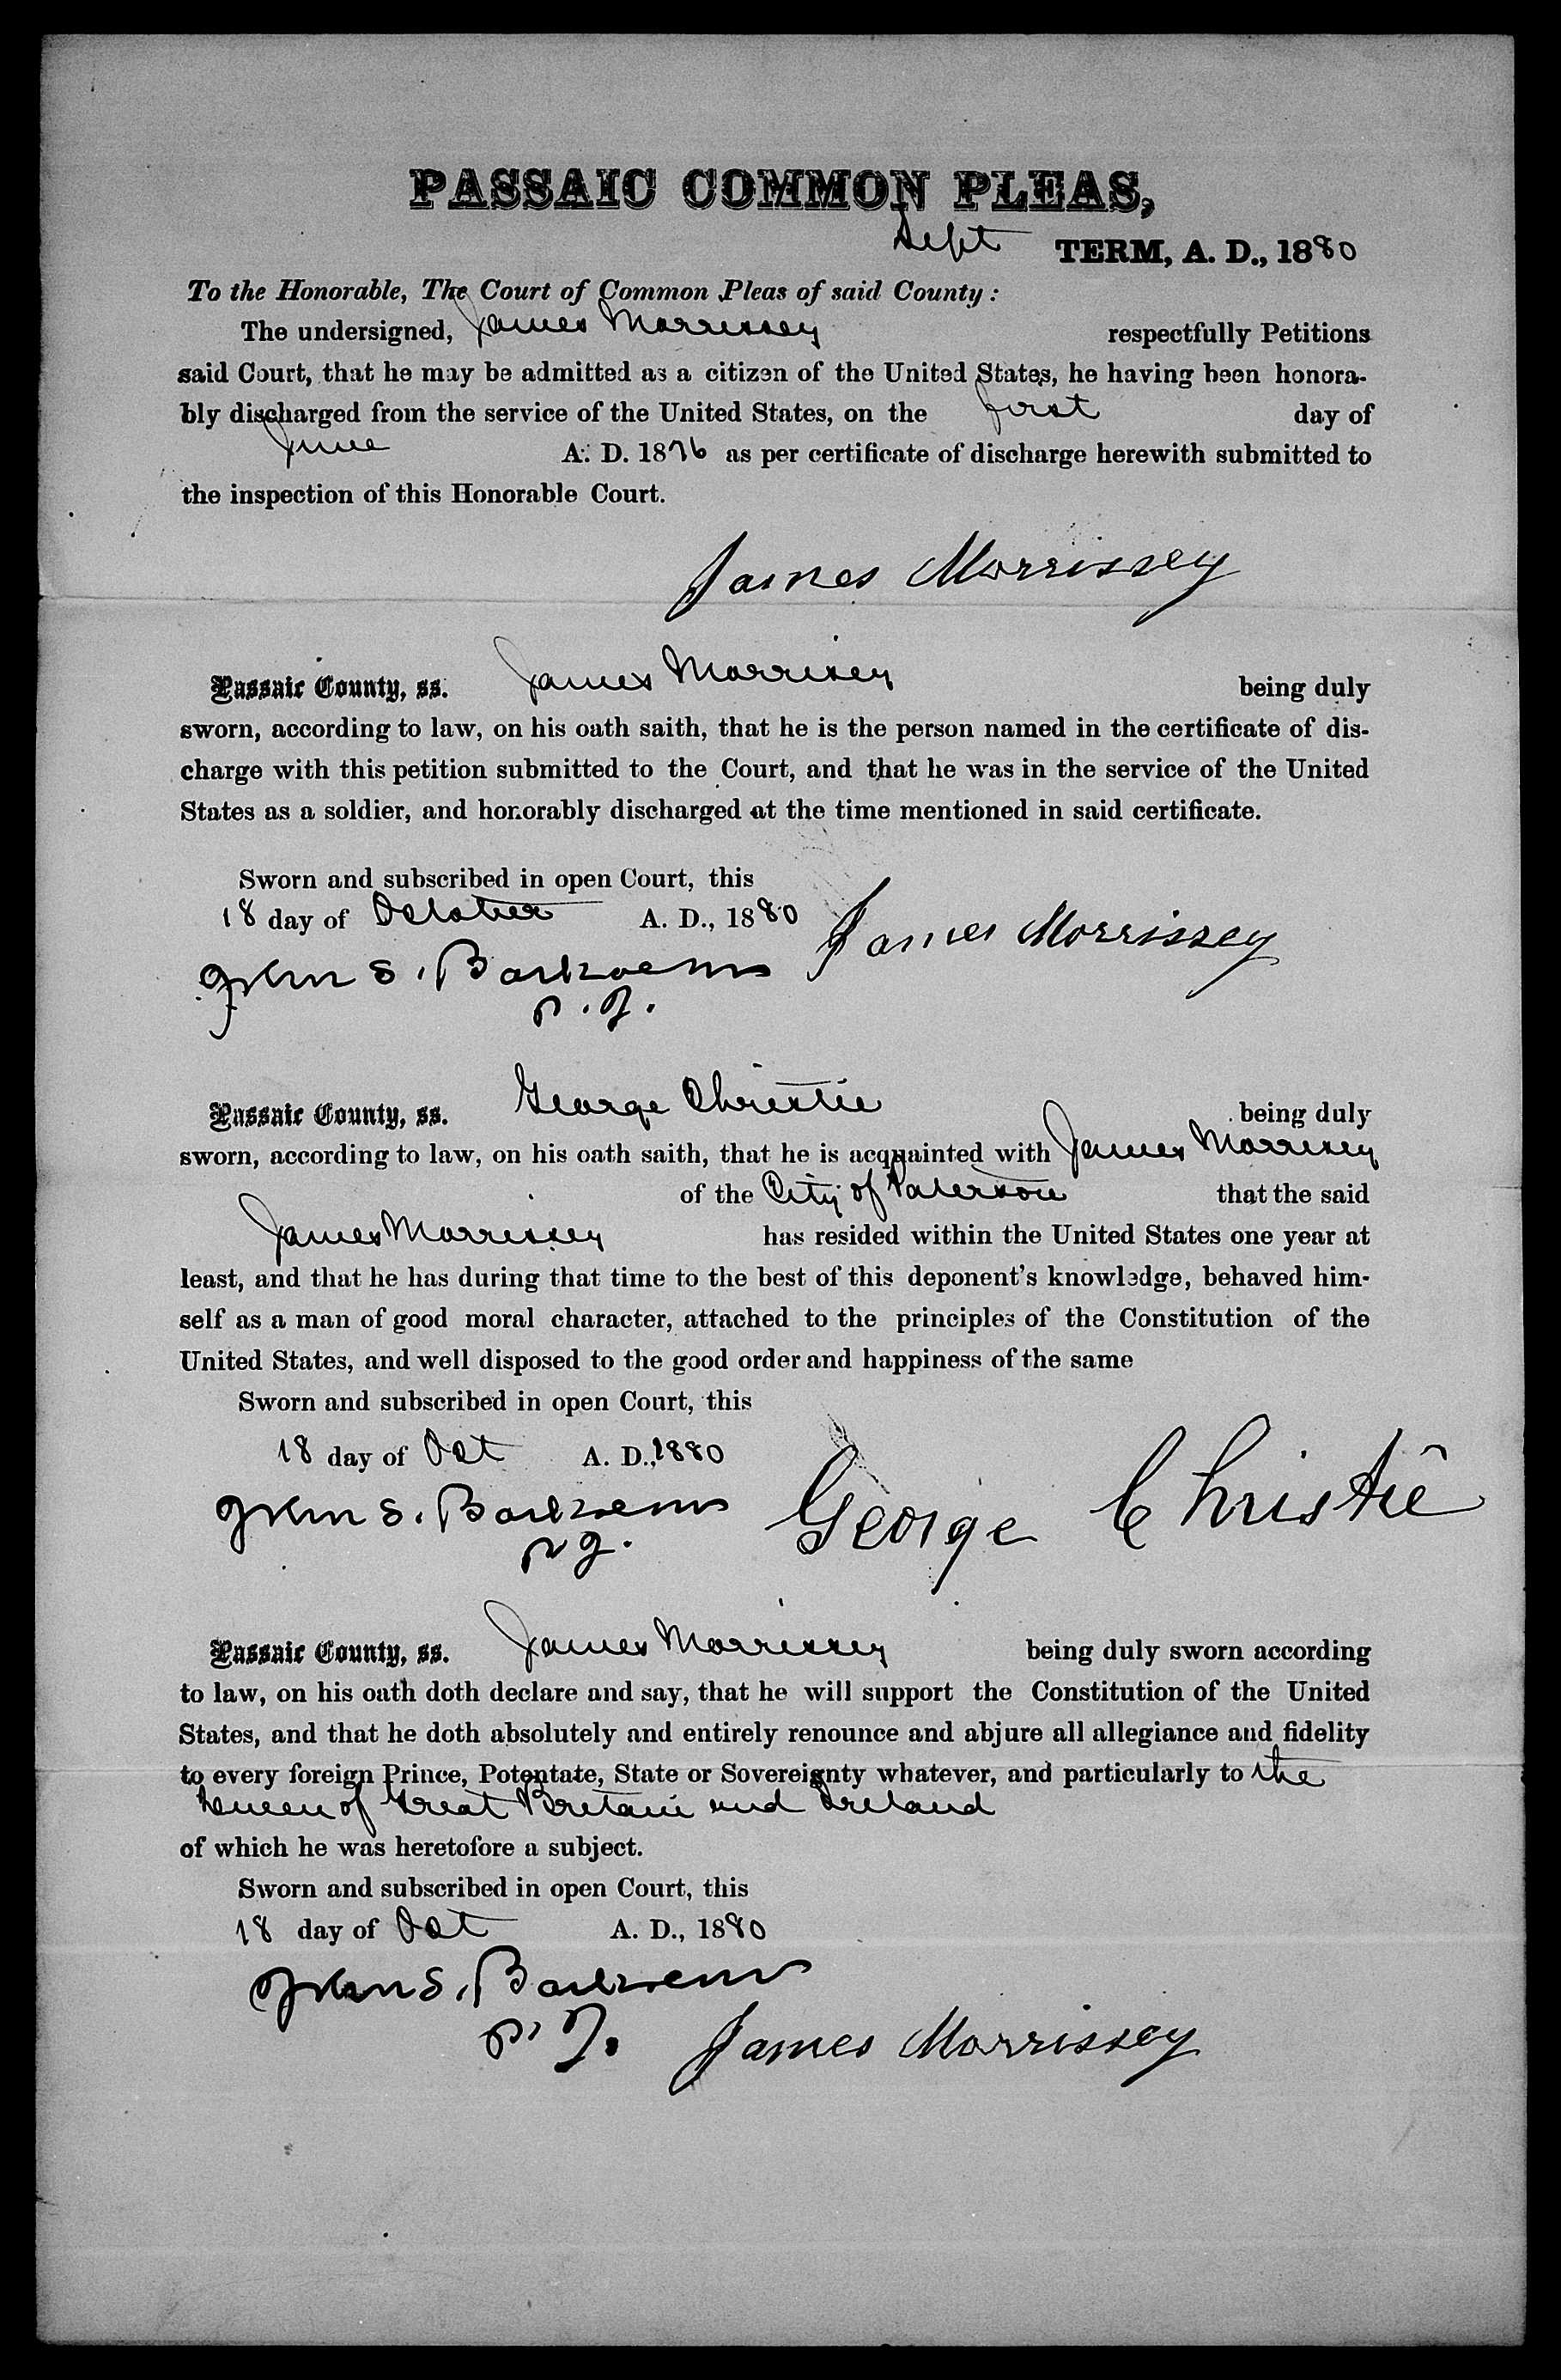 PASSAIC COMMON PLEAS,
Sept TERM, A. D., 1880
To the Honorable, The Court of Common Pleas of said County :
The undersigned, James Morrissey respectfully Petitions
said Court, that he may be admitted as a citizen of the United States, he having been honora-
bly discharged from the service of the United States, on the first day of
June A. D. 1876 as per certificate of discharge herewith submitted to
the inspection of this Honorable Court.
James Morrissey
Passaic County, ss. James Morrisey being duly
sworn, according to law, on his oath saith, that he is the person named in the certificate of dis-
charge with this petition submitted to the Court, and that he was in the service of the United
States as a soldier, and honorably discharged at the time mentioned in said certificate.
Sworn and subscribed in open Court, this
18 day of October A. D., 1880 James Morrissey
John S. Barkalow
P. J.
Passaic County, ss. George Christie being duly
sworn, according to law, on his oath saith, that he is acquainted with James Morrisey
of the City of Paterson that the said
James Morrissey has resided within the United States one year at
least, and that he has during that time to the best of this deponent's knowledge, behaved him-
self as a man of good moral character, attached to the principles of the Constitution of the
United States, and well disposed to the good order and happiness of the same
Sworn and subscribed in open Court, this
18 day of Oct A. D., 1880
John S. George Christie
Passaic County, ss. James Morrissey being duly sworn according
to law, on his oath doth declare and say, that he will support the Constitution of the United
States, and that he doth absolutely and entirely renounce and abjure all allegiance and fidelity
to every foreign Prince, Potentate, State or Sovereignty whatever, and particularly to the
Queen of Great Britain and Ireland
of which he was heretofore a subject.
Sworn and subscribed in open Court, this
18 day of Oct A. D., 1880
John S.
P. J. James Morrissey